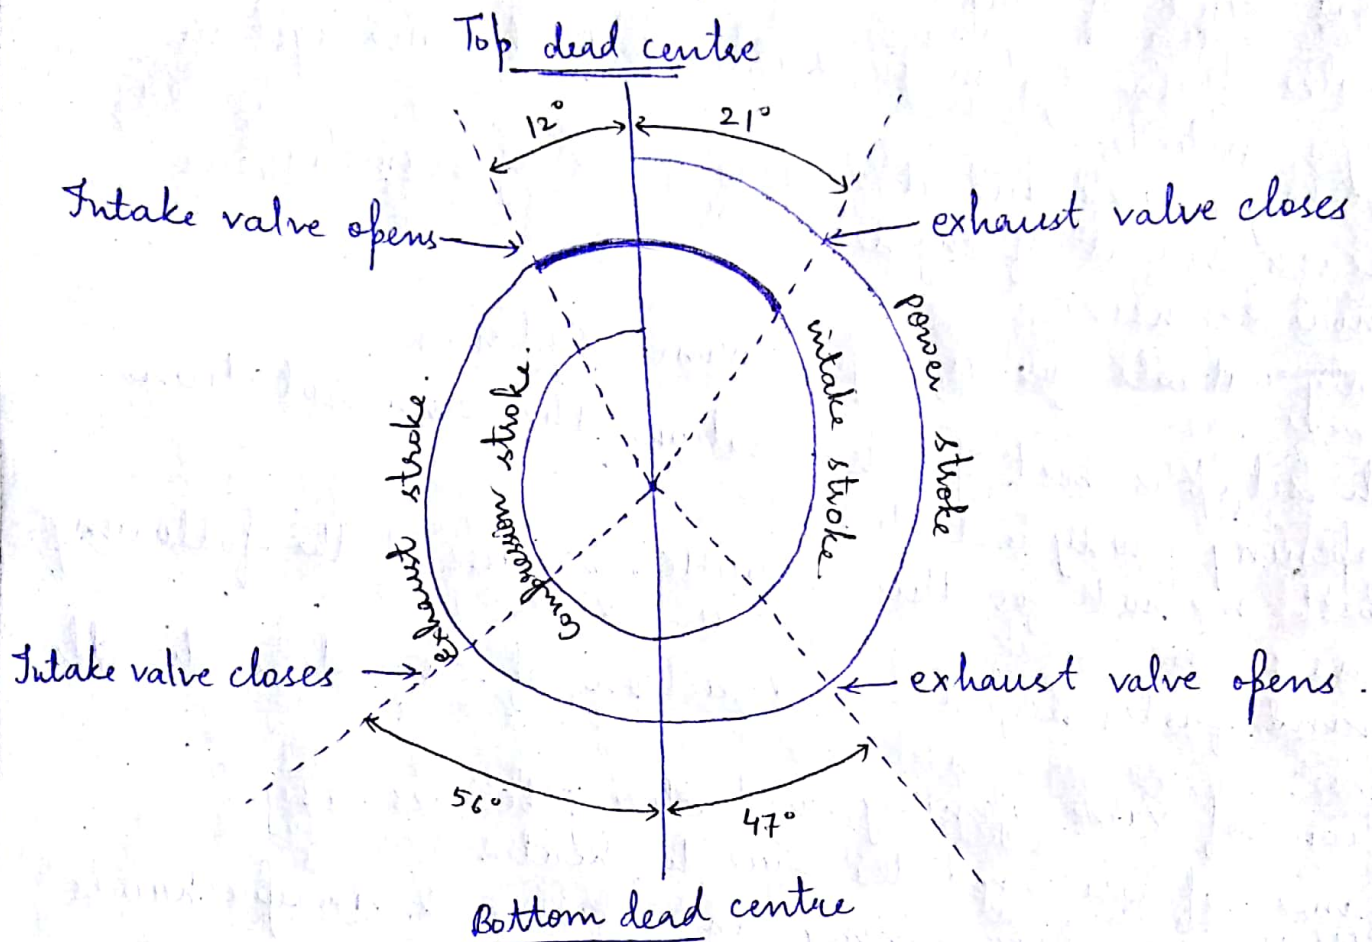 Top dead centre
12° 21°
Intake valve opens
exhaust valve closes
power stroke
intake stroke
Compression stroke.
exhaust stroke.
Intake valve closes
exhaust valve opens.
56° 47°
Bottom dead centre